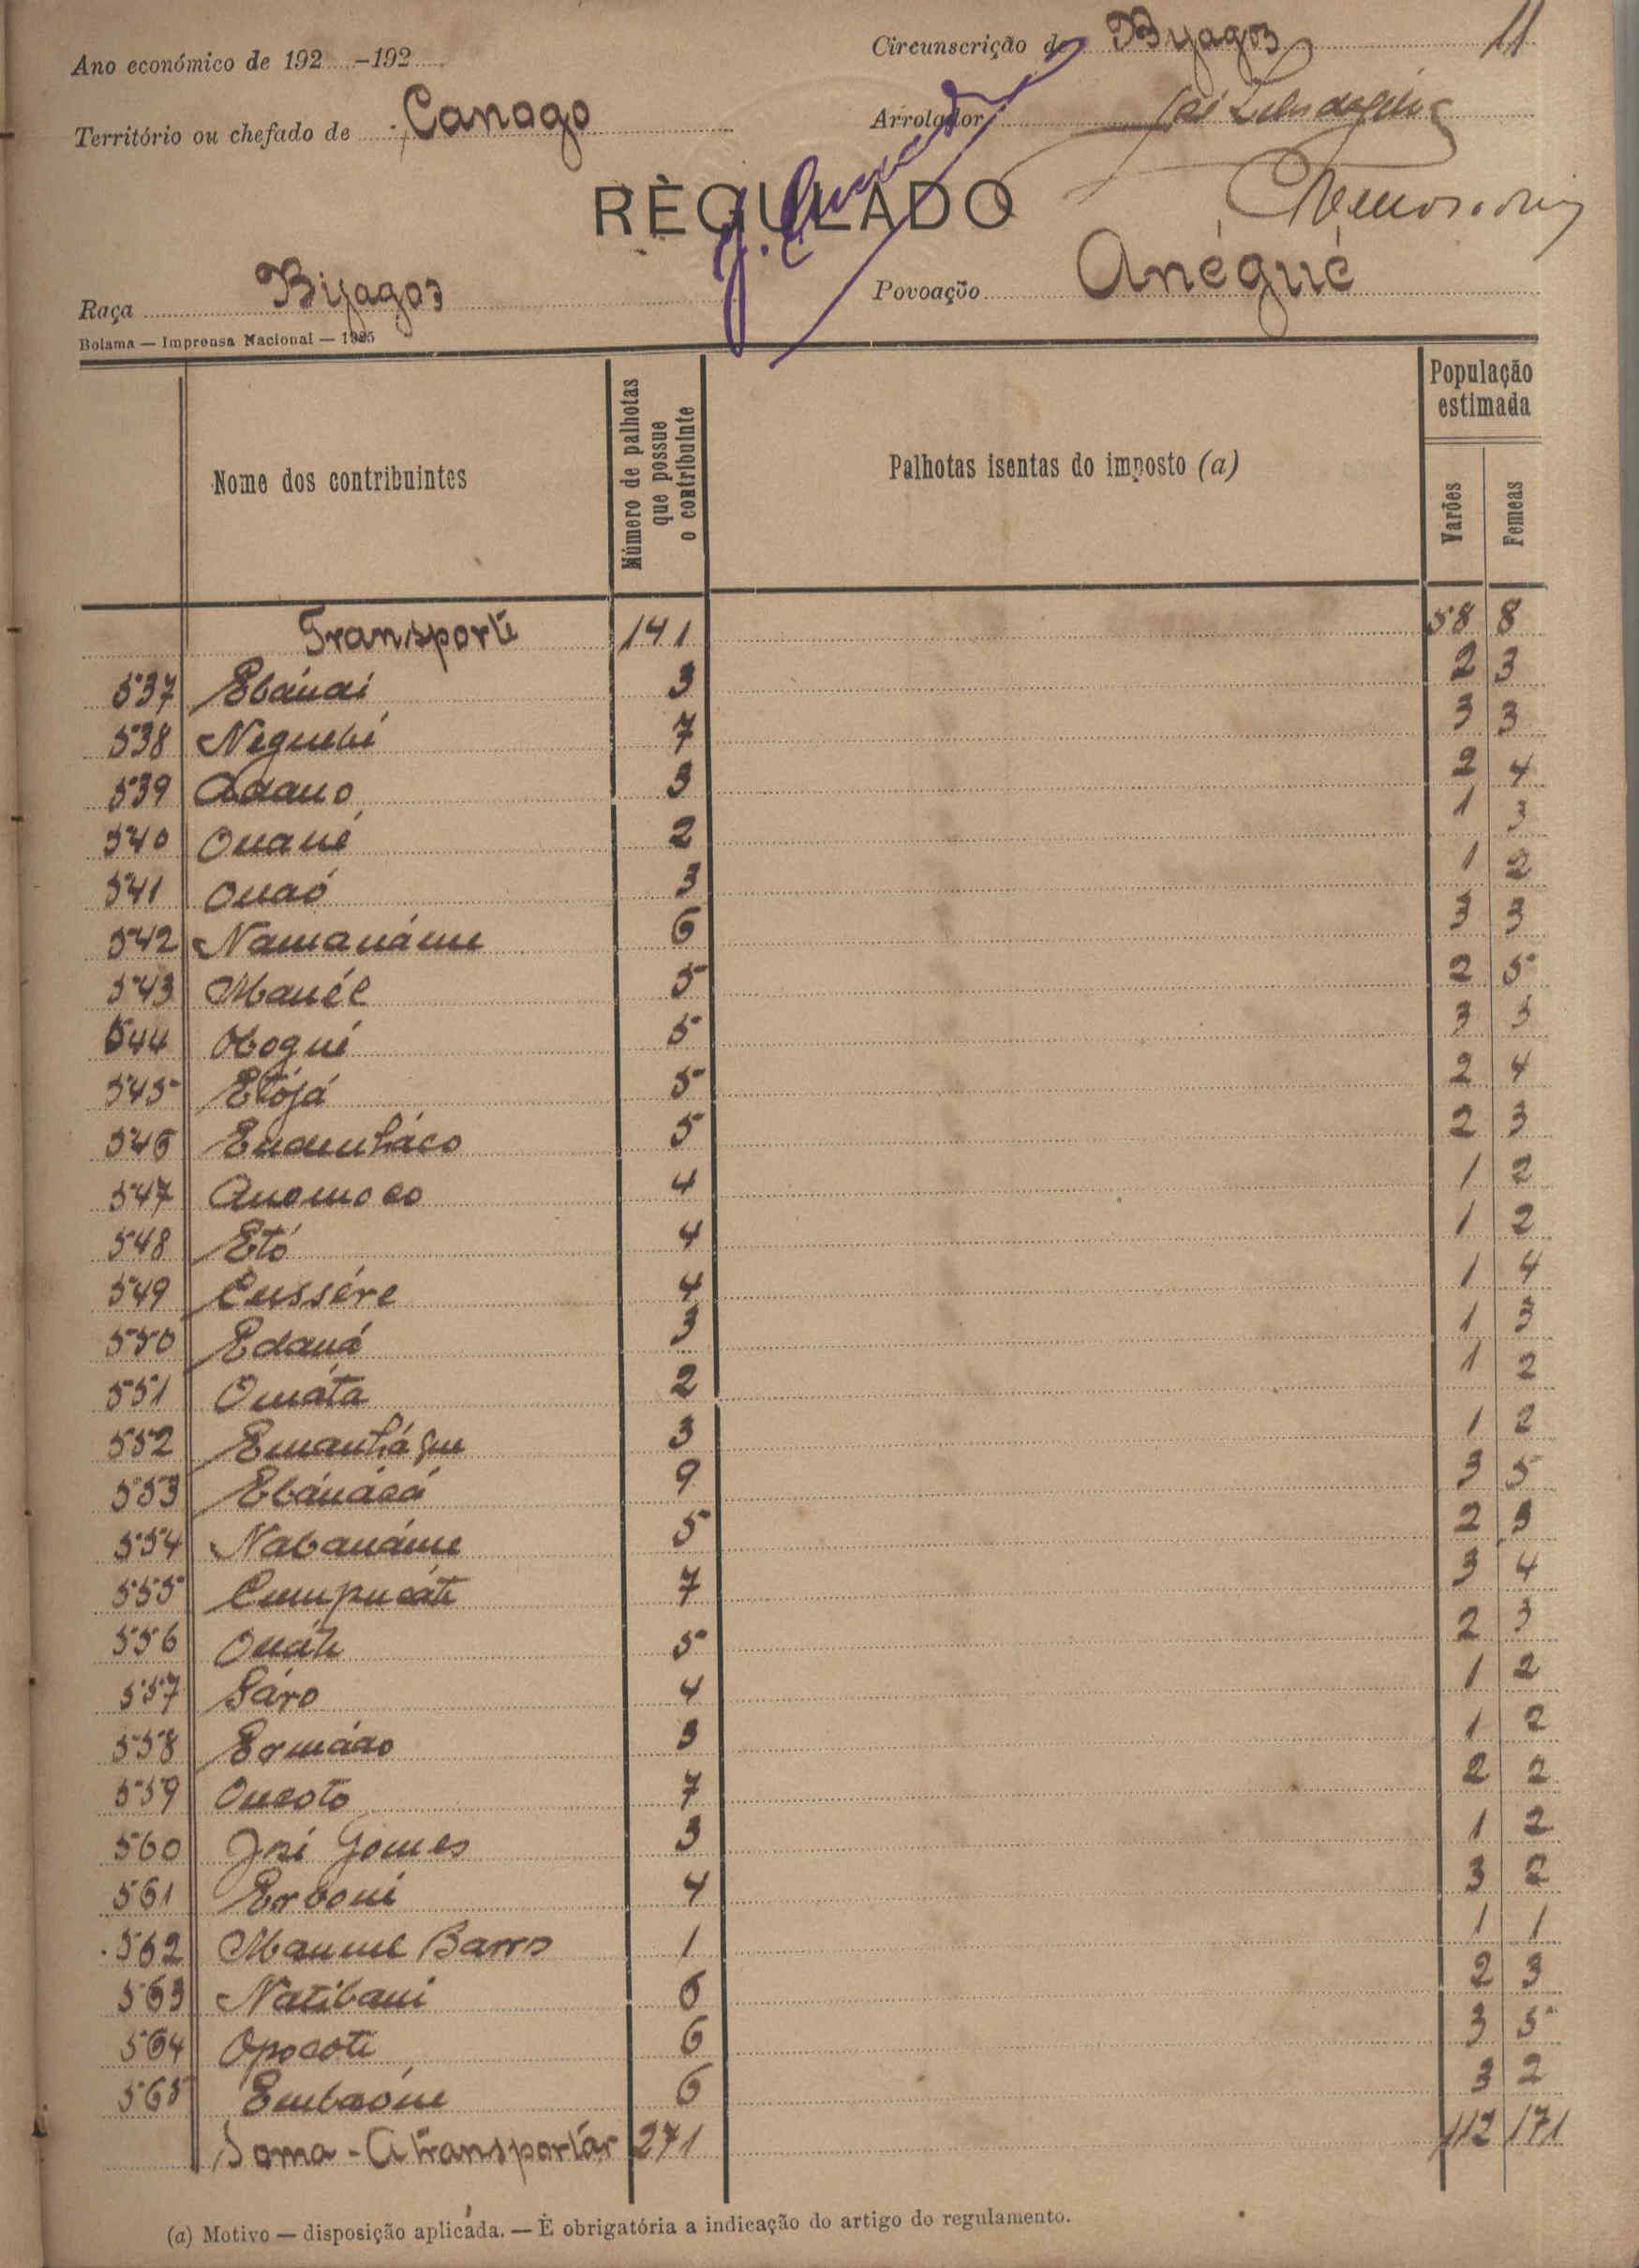 Ano económico de 192 -192
Circunscrição de Bijagoz 11
Território ou chefado de Canogo
Arrolador
RÈGULADO
Raça Bijagoz
Povoação Anégué
Bolama — Imprensa Nacional — 1925
Nome dos contribuintes
Número de palhotas que possue o contribuinte
Palhotas isentas do imposto (a)
População estimada
Varões
Femeas
Transporte 141 58 8
537 Ebánai 3 2 3
538 Neguebé 7 3 3
539 Adano 3 2 4
540 Ouané 2 1 3
541 Ouaó 3 1 2
542 Namanáme 6 3 3
543 Manél 5 2 5
544 Obogué 5 3 3
545 Etójá 5 2 4
546 5 2 3
547 Anomoco 4 1 2
548 Etó 4 1 2
549 Cussére 4 1 4
550 Edaná 3 1 3
551 Omáta 2 1 2
552 3 1 2
553 Ebánácá 9 3 5
554 Nabanáme 5 2 3
555 Cumpucáte 7 3 4
556 Ouáte 5 2 3
557 Sáro 4 1 2
558 3 1 2
559 Oucoto 7 2 2
560 José Gomes 3 1 2
561 Erboni 4 3 2
562 Manuel Barros 1 1 1
563 Natibani 6 2 3
564 Opocote 6 3 5
565 6 3 2
Soma - A transportár 271 112 171
(a) Motivo — disposição aplicada. — É obrigatória a indicação do artigo do regulamento.